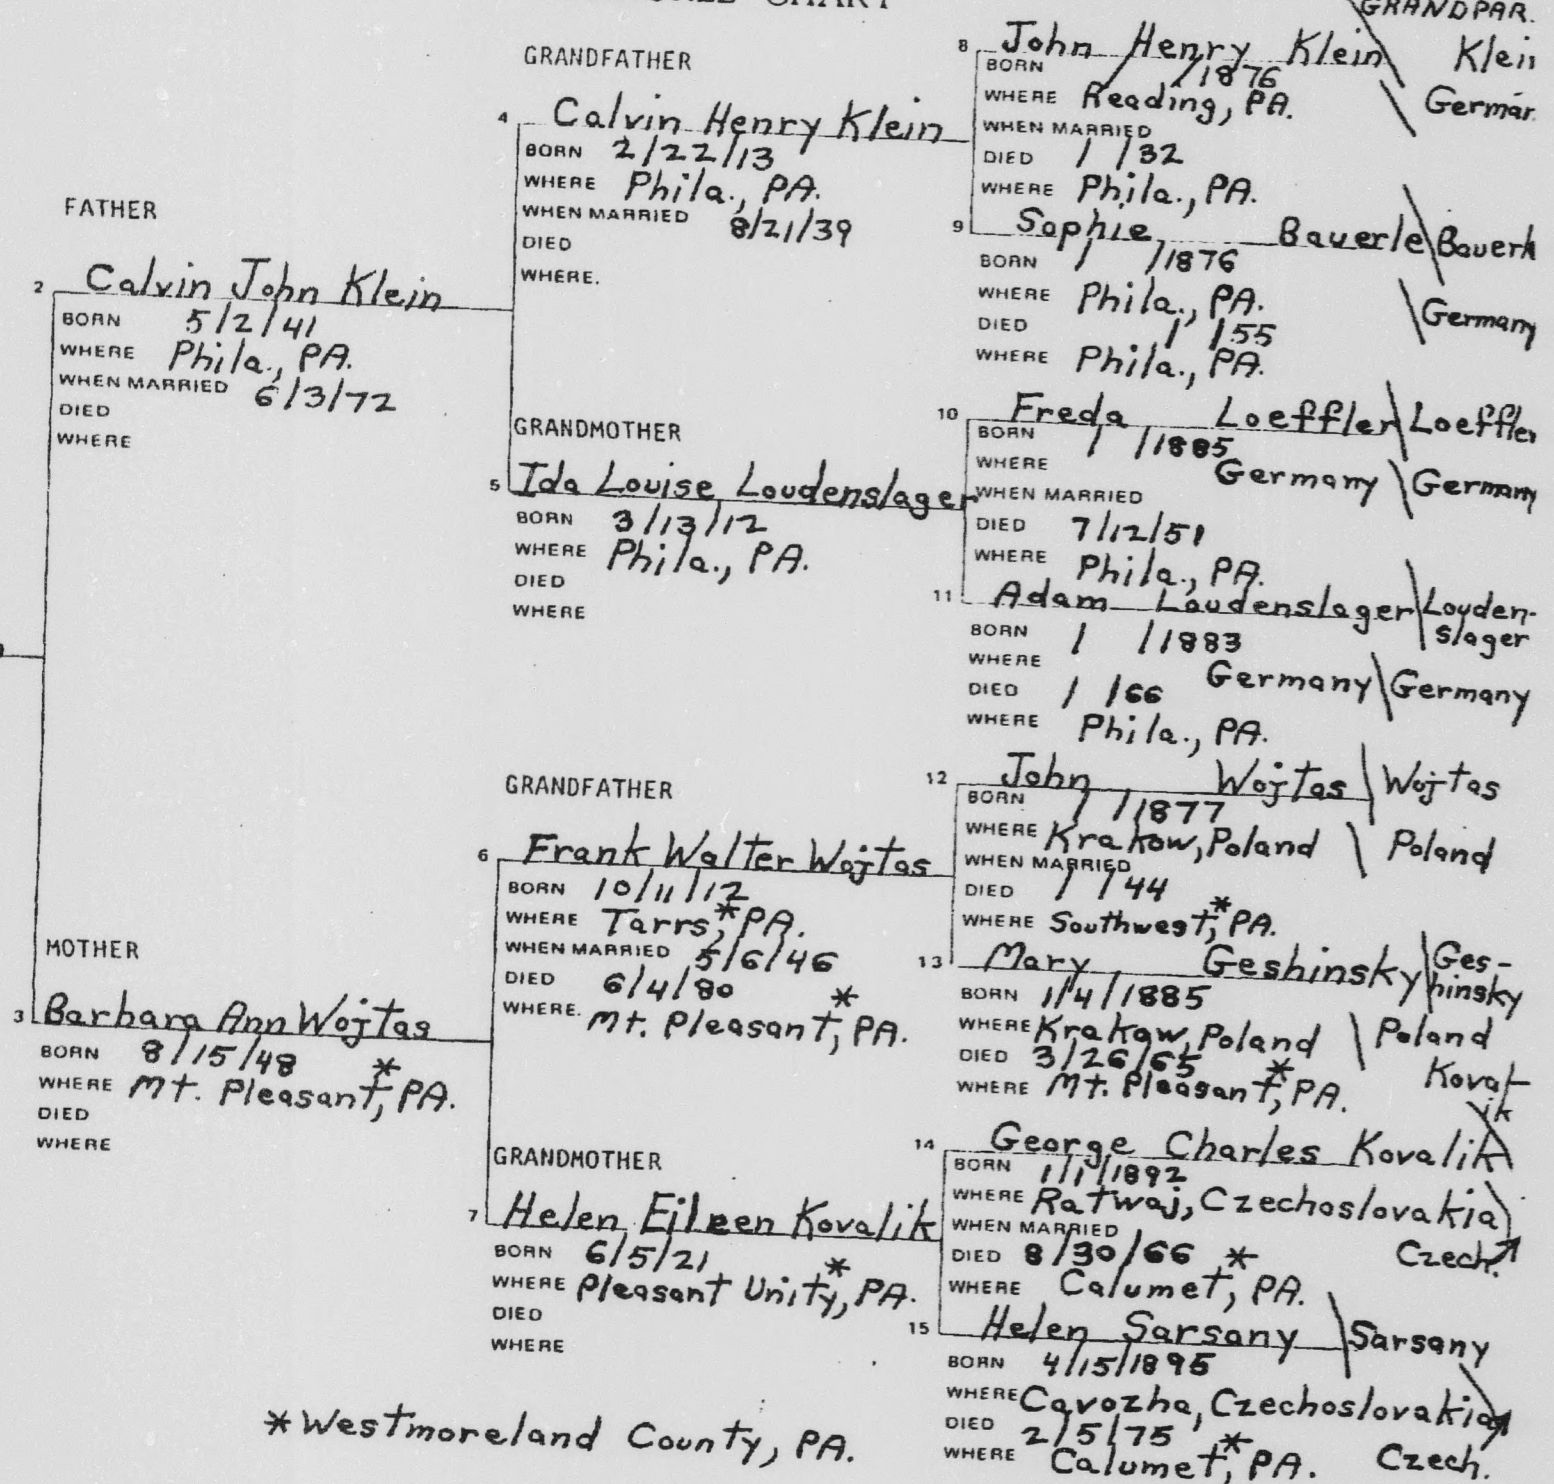 CHART
GRANDPAR.
FATHER
2 Calvin John Klein
BORN 5/2/41
WHERE Phila., PA.
WHEN MARRIED 6/3/72
DIED
WHERE
MOTHER
3 Barbara Ann Wojtas
BORN 8/15/48
WHERE Mt. Pleasant,* PA.
DIED
WHERE
GRANDFATHER
4 Calvin Henry Klein
BORN 2/22/13
WHERE Phila., PA.
WHEN MARRIED 8/21/39
DIED
WHERE.
GRANDMOTHER
5 Ida Louise Loudenslager
BORN 3/13/12
WHERE Phila., PA.
DIED
WHERE
GRANDFATHER
6 Frank Walter Wojtas
BORN 10/11/12
WHERE Tarrs,* PA.
WHEN MARRIED 5/6/46
DIED 6/4/80
WHERE. Mt. Pleasant,* PA.
GRANDMOTHER
7 Helen Eileen Kovalik
BORN 6/5/21
WHERE Pleasant Unity,* PA.
DIED
WHERE
8 John Henry Klein \ Klei
BORN / /1876
WHERE Reading, PA. \ German
WHEN MARRIED
DIED / /32
WHERE Phila., PA.
9 Sophie Bauerle \ Bauerl
BORN / /1876
WHERE Phila., PA. \ Germany
DIED / /55
WHERE Phila., PA.
10 Freda Loeffler \ Loeffler
BORN / /1885
WHERE Germany \ Germany
WHEN MARRIED
DIED 7/12/51
WHERE Phila., PA.
11 Adam Loudenslager \ Louden-
slager
BORN / /1883
WHERE Germany \ Germany
DIED / /66
WHERE Phila., PA.
12 John Wojtas \ Wojtas
BORN / /1877
WHERE Krakow, Poland \ Poland
WHEN MARRIED
DIED / /44
WHERE Southwest,* PA.
13 Mary Geshinsky \ Ges-
hinsky
BORN 1/4/1885
WHERE Krakow, Poland \ Poland
DIED 3/26/65
WHERE Mt. Pleasant,* PA.
Koval-
ik
14 George Charles Kovalik
BORN 1/1/1892
WHERE Ratwaj, Czechoslovakia
WHEN MARRIED
Czech.
DIED 8/30/66
WHERE Calumet,* PA.
15 Helen Sarsany \ Sarsany
BORN 4/15/1895
WHERE Cavozha, Czechoslovakia
DIED 2/5/75
WHERE Calumet,* PA. Czech.
* Westmoreland County, PA.